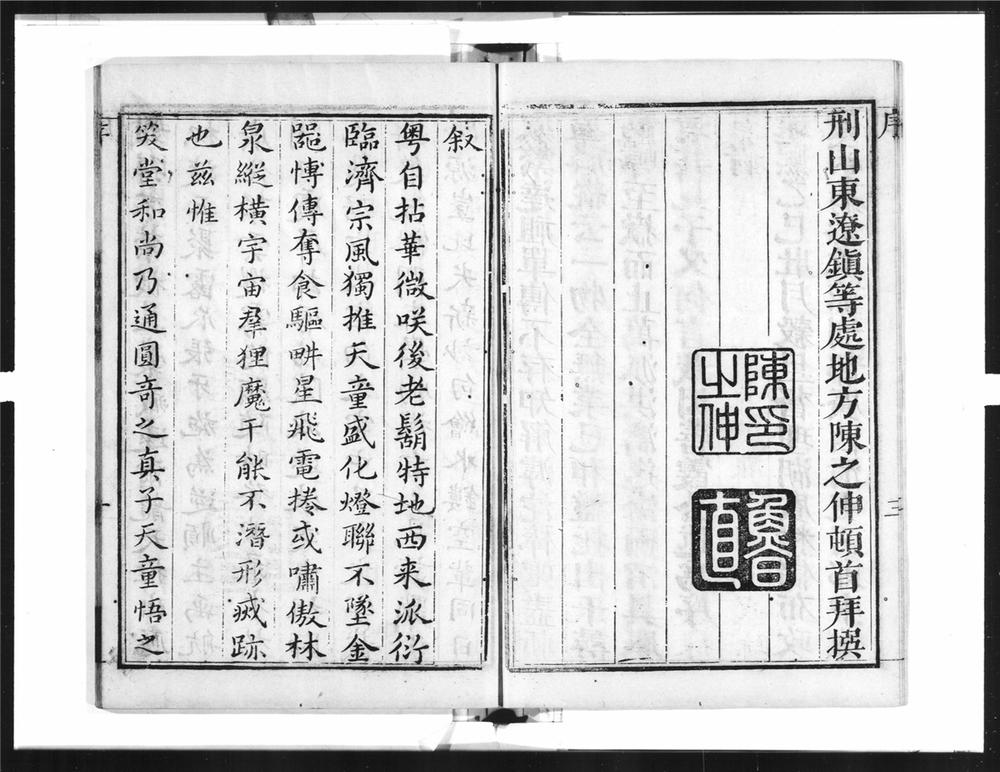 序
三
刑山東遼鎮等處地方陳之伸頓首拜撰
陳印之伸
魯直
叙
粵自拈華微咲後老鬍特地西来派衍
臨濟宗風獨推天童盛化燈聯不墜金
甌愽傳奪食驅畊星飛電捲或嘯傲林
泉縱橫宇宙羣狸魔干能不潛形滅跡
也茲惟
笑堂和尚乃通圓奇之真子天童悟之
序
一